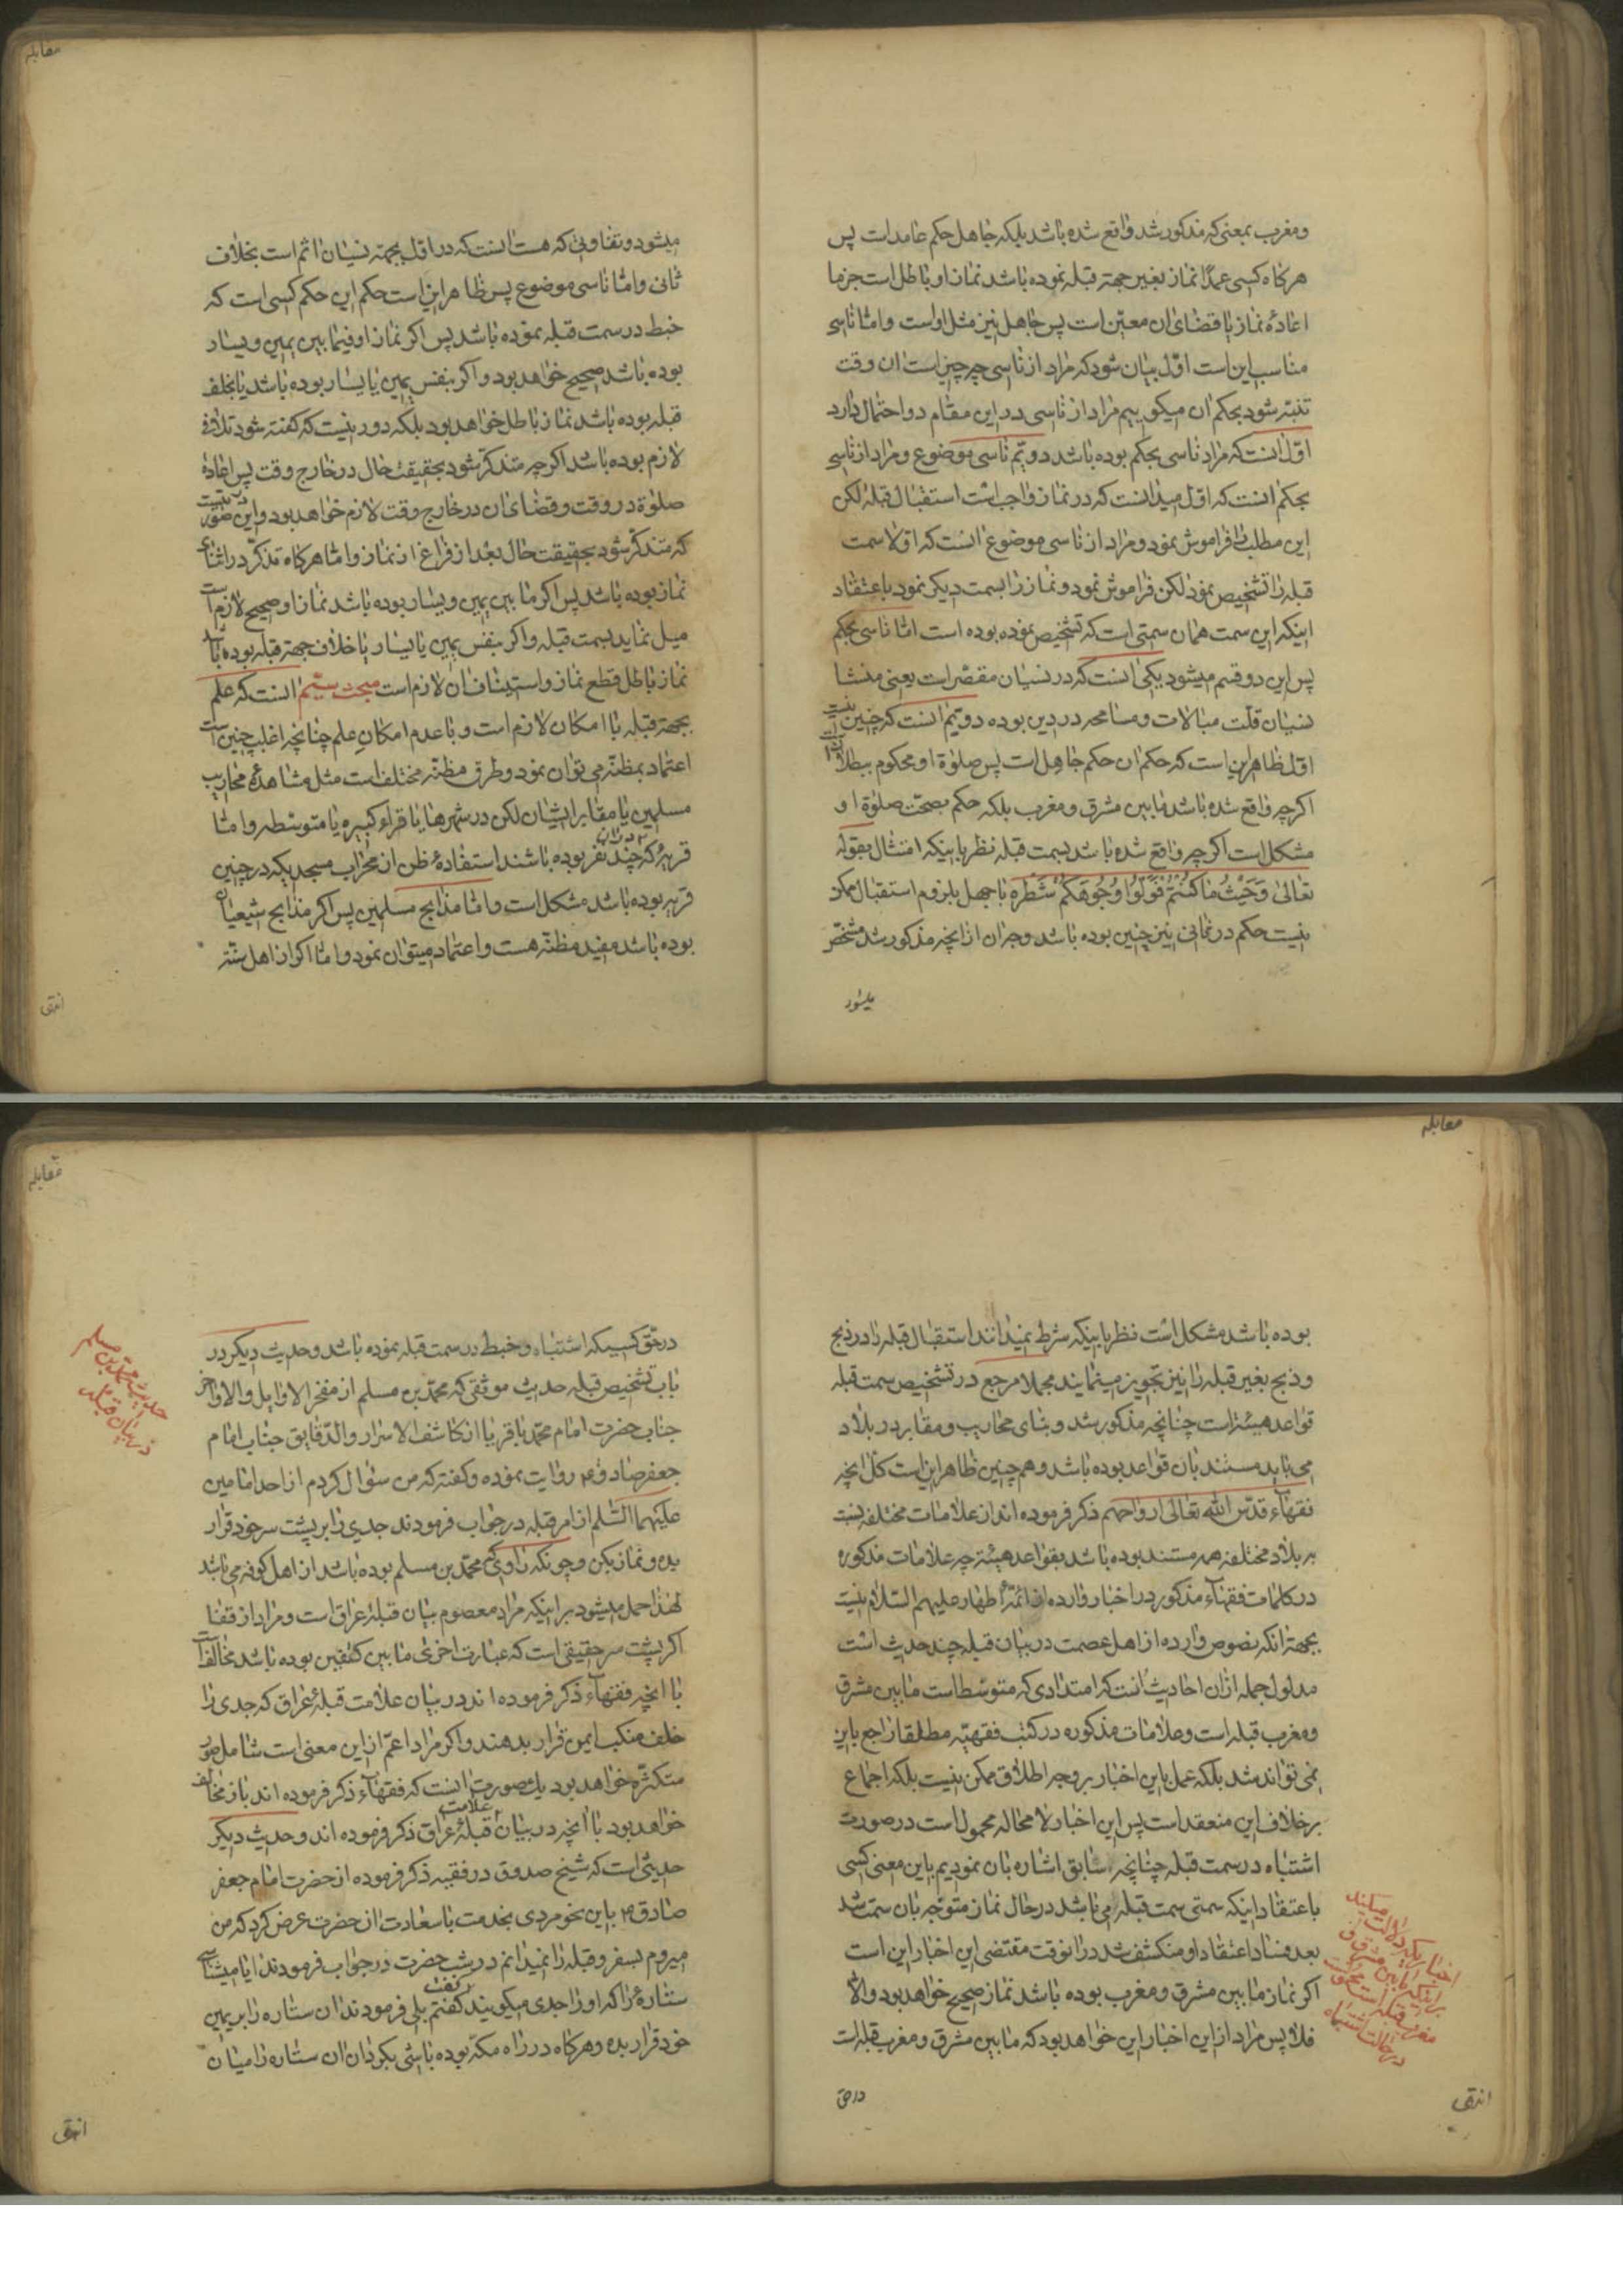 ومغرب بمعنی که مذکور شد واقع شده باشد بلکه جاهل حکم عامد است پس
هرکاه کسی عمدًا نماز بغیر جهة قبله نموده باشد نماز او باطل است جزما
اعادهٔ نماز یا قضای ان معیّن است پس جاهل نیز مثل اواست واما ناسی
مناسب این است اوّل بیان شود که مراد از ناسی چه چیز است ان وقت
تنبّه شود بحکم ان میکوییم مراد از ناسی در این مقام دو احتمال دارد
اوّل انست که مراد ناسی بحکم بوده باشد دویّم ناسی موضوع و مراد از ناسی
بحکم انست که اوّل میدانست که در نماز واجب است استقبال قبله لکن
این مطلب را فراموش نمود و مراد از ناسی موضوع انست که اوّلا سمت
قبله را تشخیص نمود لکن فراموش نمود و نماز را بسمت دیکر نمود باعتقاد
اینکه این سمت همان سمتی است که تشخیص نموده بوده است امّا ناسی بحکم
پس این دو قسم میشود یکی انست که در نسیان مقصّر است یعنی منشا
نسیان قلّت مبالات و مسامحه در دین بوده دویّم انست که چنین نیست
اوّل ظاهر این است که حکم ان حکم جاهل است پس صلوة او محکوم ببطلان است
اکرچه واقع شده باشد مابین مشرق و مغرب بلکه حکم بصحّت صلوة او
مشکل است اکرچه واقع شده باشد بسمت قبله نظر باینکه امتثال بقوله
تعالی وَحَیْثُ مَا کُنْتُمْ فَوَلُّوا وُجُوهَکُمْ شَطْرَهُ با جهل بلزوم استقبال ممکن
نیست حکم در ثانی نیز چنین بوده باشد وجه ان از انچه مذکور شد مشخّص
میشود
مقابله
میشود و تفاوتی که هست انست که در اوّل بجهة نسیان اثم است بخلاف
ثانی وامّا ناسی موضوع پس ظاهر این است حکم این حکم کسی است که
خبط در سمت قبله نموده باشد پس اکر نماز او فیما بین یمین و یسار
بوده باشد صحیح خواهد بود و اکر بنفس یمین یا یسار بوده باشد یا بخلف
قبله بوده باشد نماز باطل خواهد بود بلکه دور نیست که کفته شود تلافی
لازم بوده باشد اکرچه متذکّر شود بحقیقت حال در خارج وقت پس اعادهٔ
صلوة در وقت و قضای ان در خارج وقت لازم خواهد بود و این در صورتیست
که متذکّر شود بحقیقت حال بعد از فراغ از نماز و امّا هرکاه تذکّر در اثنای
نماز بوده باشد پس اکر ما بین یمین و یسار بوده باشد نماز او صحیح لازم است
میل نماید بسمت قبله و اکر بنفس یمین یا یسار یا خلاف جهة قبله بوده باشد
نماز باطل قطع نماز و استیناف ان لازم است مبحث سیّم انست که علم
بجهة قبله با امکان لازم است و با عدم امکان علم چنانچه اغلب چنین است
اعتماد بمظنّه می توان نمود و طرق مظنّه مختلف است مثل مشاهدهٔ محاریب
مسلمین یا مقابر ایشان لکن در شهرها یا قراء کبیره یا متوسّطه و امّا
قریهٔ که چند نفر بوده باشند استفادهٔ ظن از محراب مسجدیکه در چنین
قریه بوده باشد مشکل است و امّا مذابح مسلمین پس اکر مذابح شیعیان
بوده باشد مفید مظنّه هست و اعتماد میتوان نمود و امّا اکر از اهل سنّته
انتهی
مقابله
بوده باشد مشکل است نظر باینکه شرط نمیدانند استقبال قبله را در ذبح
و ذبح بغیر قبله را نیز تجویز مینمایند مجملا مرجع در تشخیص سمت قبله
قواعد هیئة است چنانچه مذکور شد و بنای محاریب و مقابر در بلاد
می باید مستند بان قواعد بوده باشد و هم چنین ظاهر این است کل انچه
فقهآء قدّس الله تعالی ارواحهم ذکر فرموده اند از علامات مختلفه نسبت
به بلاد مختلفه همه مستند بوده باشد بقواعد هیئة چه علامات مذکوره
در کلمات فقهآء مذکور در اخبار وارده از ائمّهٔ اطهار علیهم السّلام نیست
بجهة انکه نصوص وارده از اهل عصمت در بیان قبله چند حدیث است
مدلول جمله ازان احادیث انست که امتدادی که متوسّط است مابین مشرق
و مغرب قبله است و علامات مذکوره در کتب فقهیّه مطلقا راجع باین
نمی تواند شد بلکه عمل باین اخبار بر وجه اطلاق ممکن نیست بلکه اجماع
بر خلاف این منعقد است پس این اخبار لا محاله محمول است در صورت
اشتباه در سمت قبله چنانچه سابق اشاره بان نمودیم باین معنی کسی
باعتقاد اینکه سمتی سمت قبله می باشد در حال نماز متوجّه بان سمت شد
بعد فساد اعتقاد او منکشف شد درانوقت مقتضی این اخبار این است
اکر نماز مابین مشرق و مغرب بوده باشد نماز صحیح خواهد بود والّا
فلا پس مراد از این اخبار این خواهد بود که مابین مشرق و مغرب قبله است
اخباریکه دلالت میکند
بر اینکه مابین مشرق و
مغرب قبله است محمول است
در حالت اشتباه
در حق
انتهی
مقابله
در حقّ کسیکه اشتباه و خبط در سمت قبله نموده باشد و حدیث دیکر در
باب تشخیص قبله حدیث موثّقی که محمّد بن مسلم از مفخر الاوایل والاواخر
جناب حضرت امام محمّد باقر یا از کاشف الاسرار والدّقایق جناب امام
جعفر صادق ع روایت نموده و کفته که من سئوال کردم از احد امامین
علیهما السّلم از امر قبله در جواب فرمودند جدی را بر پشت سر خود قرار
بده و نماز بکن و چونکه راوی محمّد بن مسلم بوده باشد از اهل کوفه می باشد
لهذا حمل میشود بر اینکه مراد معصوم بیان قبلهٔ عراق است و مراد از قفا
اکر پشت سر حقیقی است که عبارت اخری ما بین کتفین بوده باشد مخالف است
با انچه فقهآء ذکر فرموده اند در بیان علامت قبلهٔ عراق که جدی را
خلف منکب ایمن قرار بدهند و اکر مراد اعمّ از این معنی است شامل صور
متکثّره خواهد بود یک صورت انست که فقهآء ذکر فرموده اند باز مخالف
خواهد بود با انچه در بیان علامت قبلهٔ عراق ذکر فرموده اند و حدیث دیکر
حدیثی است که شیخ صدوق در فقیه ذکر فرموده از حضرت امام جعفر
صادق ع باین نحو مردی بخدمت با سعادت ان حضرت عرض کرد که من
میروم بسفر و قبله را نمیدانم در شب حضرت در جواب فرمودند ایا میشناسی
ستارهٔ را که او را جدی میکویند کفت کفتم بلی فرمودند ان ستاره را بر یمین
خود قرار بده و هرکاه در راه مکّه بوده باشی بکردان ان ستاره را میان
حدیث محمّد بن مسلم
در بیان قبله
انتهی